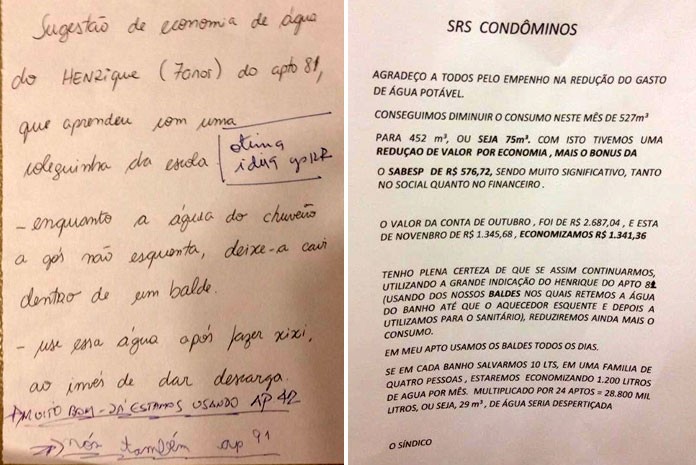 Sugestão de economia de água
do HENRIQUE (7anos) do apto 81,
que aprendeu com uma
coleguinha da escola
otima
idéia
- enquanto a água do chuveiro
a gás não esquenta, deixe-a cair
dentro de um balde.
- use essa água após fazer xixi,
ao invés de dar descarga.
MUITO BOM - JÁ ESTAMOS USANDO AP 42
nós também ap 91
SRS CONDÔMINOS
AGRADEÇO A TODOS PELO EMPENHO NA REDUÇÃO DO GASTO
DE ÁGUA POTÁVEL.
CONSEGUIMOS DIMINUIR O CONSUMO NESTE MÊS DE 527m³
PARA 452 m³, OU SEJA 75m³. COM ISTO TIVEMOS UMA
REDUÇAO DE VALOR POR ECONOMIA , MAIS O BONUS DA
O SABESP DE R$ 576,72, SENDO MUITO SIGNIFICATIVO, TANTO
NO SOCIAL QUANTO NO FINANCEIRO .
O VALOR DA CONTA DE OUTUBRO , FOI DE R$ 2.687,04 , E ESTA
DE NOVENBRO DE R$ 1.345,68 , ECONOMIZAMOS R$ 1.341,36
TENHO PLENA CERTEZA DE QUE SE ASSIM CONTINUARMOS,
UTILIZANDO A GRANDE INDICAÇÃO DO HENRIQUE DO APTO 81
(USANDO DOS NOSSOS BALDES NOS QUAIS RETEMOS A ÁGUA
DO BANHO ATÉ QUE O AQUECEDOR ESQUENTE E DEPOIS A
UTILIZAMOS PARA O SANITÁRIO), REDUZIREMOS AINDA MAIS O
CONSUMO.
EM MEU APTO USAMOS OS BALDES TODOS OS DIAS.
SE EM CADA BANHO SALVARMOS 10 LTS, EM UMA FAMILIA DE
QUATRO PESSOAS , ESTAREMOS ECONOMIZANDO 1.200 LITROS
DE AGUA POR MÊS. MULTIPLICADO POR 24 APTOS = 28.800 MIL
LITROS, OU SEJA, 29 m³ , DE ÁGUA SERIA DESPERTIÇADA
O SÍNDICO